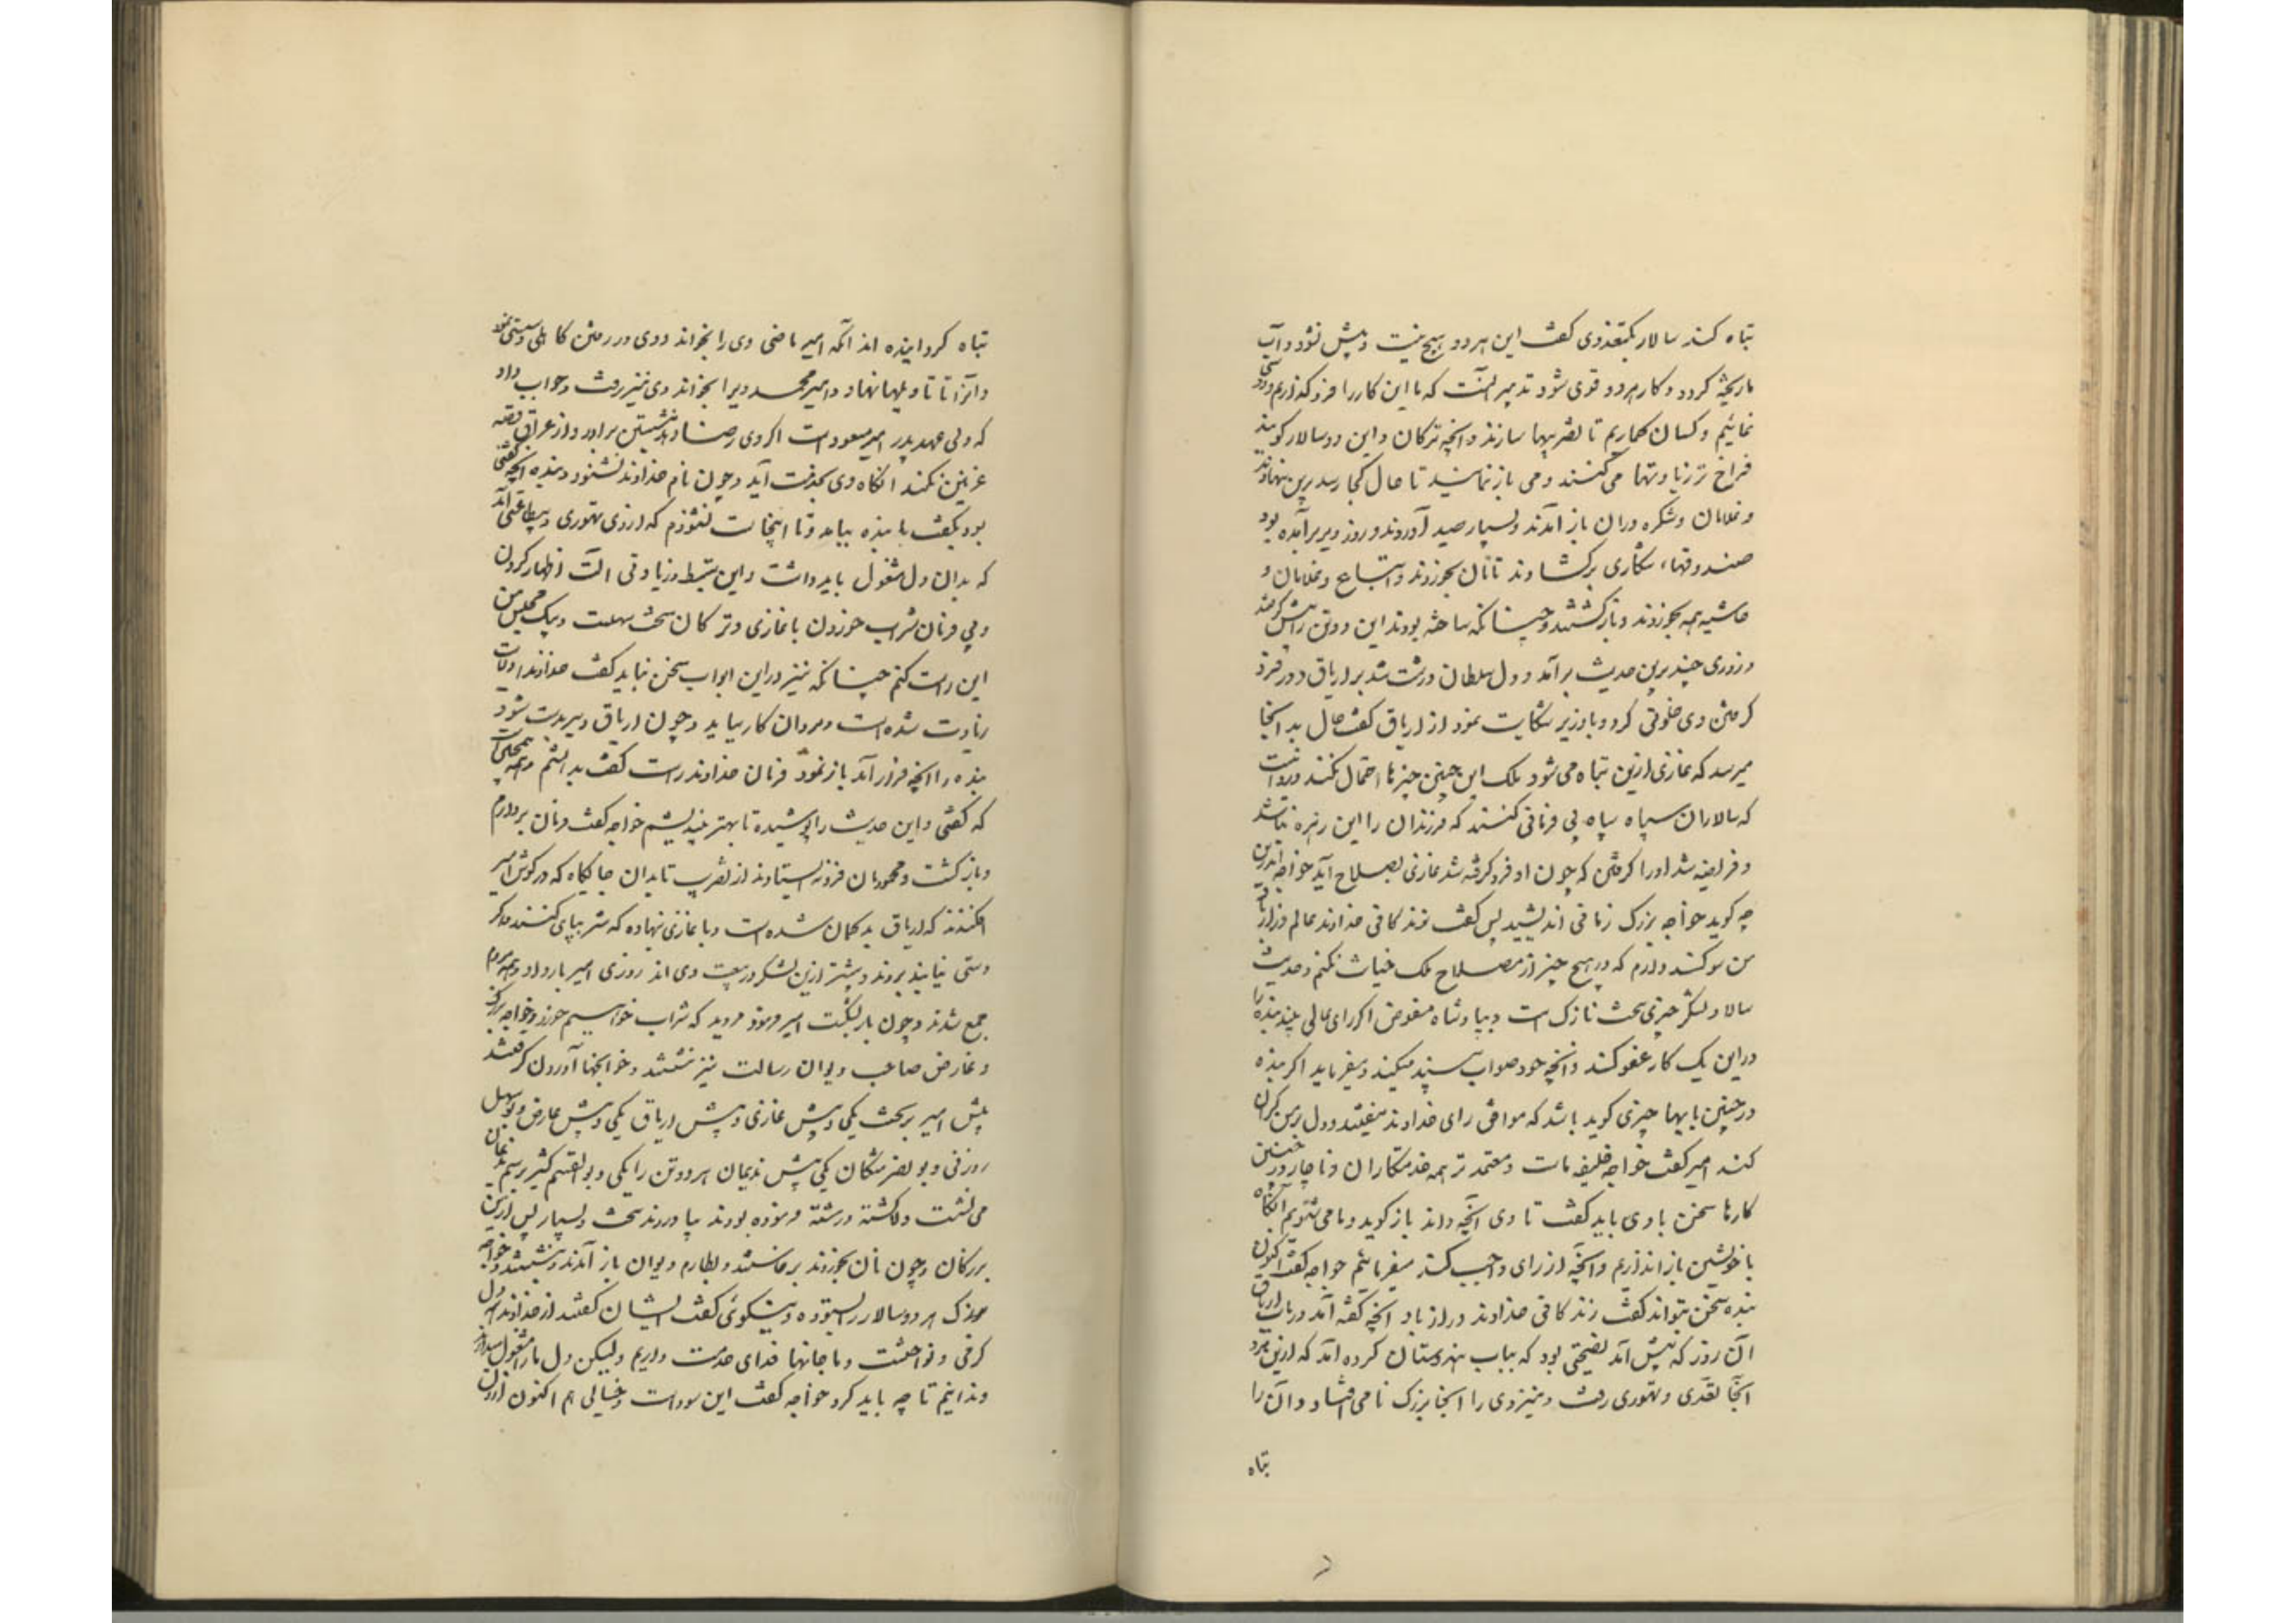 تباه کند سالار بکتغدی گفت این هر دو هیچ نیست و پیش نشود و آب
ما ریخته گردد و کار هر دو قوی شود تدبیر آنست که ما این کار را فرو گذاریم و دوستی
نمائیم و کسان گماریم تا تضریبها سازند و آنچه ترکان و این دو سالار گویند
فراخ‌تر زیادتها می‌کنند و می باز نمایند تا حال کجا رسد برین بنهادند
و غلامان و شکره‌داران باز آمدند و بسیار صید آوردند و روز دیر برآمده بود
صندوقهاء شکاری برگشادند تا نان بخوردند و اتباع و غلامان و
حاشیه همه بخوردند و بازگشتند و چنانکه ساخته بودند این دو تن را پیش گرفتند
و روزی چند برین حدیث برآمد و دل سلطان درشت شد بر اریاق و در فرو
گرفتن وی خلوتی کرد و با وزیر شکایت نمود از اریاق گفت حال بدانجا
میرسد که غازی ازین تباه می‌شود ملک این چنین چیزها احتمال نکند و روا نیست
که سالاران سپاه بی فرمانی کنند که فرزندان را این زهره نباشد
و فریضه شد او را گرفتن که چون او فرو گرفته شد غازی بصلاح آید خواجه اندرین
چه گوید خواجه بزرگ زمانی اندیشید پس گفت زندگانی خداوند عالم دراز باد
من سوگند دارم که در هیچ چیز از مصلاح ملک خیانت نکنم و حدیث
سالار و لشکر چیزی سخت نازک است و بپادشاه مفوض اگر رای عالی بیند بنده را
در این یک کار عفو کند و آنچه خود صواب بیند میکند و میفرماید اگر بنده
در چنین بابها چیزی گوید باشد که موافق رای خداوند نیفتد و دل بر من گران
کند امیر گفت خواجه خلیفه ماست و معتمدتر همه خدمتکاران و ناچار در چنین
کارها سخن با وی باید گفت تا وی آنچه داند باز گوید و ما می‌شنویم آنگاه
با خویشتن باز اندازیم و آنچه از رای واجب کند میفرمائیم خواجه گفت اکنون
بنده سخن بتواند گفت زندگانی خداوند دراز باد آنچه گفته آمد در باب اریاق
آن روز که پیش آمد نصیحتی بود که بباب هندوستان کرده آمد که ازین مرد
آنجا تعدی و تهوری رفت و نیز وی را آنجا بزرگ نامی افتاد و آن را
تباه
تباه گردانیده اند آنکه امیر ماضی وی را بخواند و وی در رفتن کاهلی و سستی نمود
و آنرا تاویلها نهاد و امیر محمد ویرا بخواند وی نیز نرفت و جواب داد
که ولی عهد پدر امیر مسعود است اگر وی رضا دهد بنشستن برادر و از عراق قصد
غزنین نکند آنگاه وی بخدمت آید و چون نام خداوند بشنود و بنده آنچه گفتنی
بود بگفت با بنده بیامد و تا اینجا است نشنودم که از وی تهوری و بیطاعتی آمد
که بدان دل مشغول باید داشت و این تبسط و زیادتی آلت اظهار کردن
و بی فرمان شراب خوردن با غازی و ترکان سخت سهلست و بیک مجلس من
این راست کنم چنانکه نیز در این ابواب سخن نباید گفت خداوند را ولایت
زیادت شده است و مردان کار بباید و چون اریاق دیر بدست شود
بنده را آنچه فراز آمد باز نمود فرمان خداوند راست گفت بدانستم و همه همچنین است
که گفتی و این حدیث را پوشیده تا بهتر بیندیشیم خواجه گفت فرمان بردارم
و بازگشت و محمودیان فرو نایستادند از تضریب تا بدان جایگاه که در گوش امیر
افکندند که اریاق بد گمان شده است و با غازی بنهاده که شر بپای کنند و اگر
دستی نیابند بروند و بیشتر ازین لشکر در بیعت وی اند روزی امیر بار داد و همه مردم
جمع شدند و چون بار بگسست امیر فرمود مروید که شراب خواهیم خورد و خواجه بزرگ
و عارض صاحب دیوان رسالت نیز نشستند و خوانچها آوردن گرفتند
پیش امیر بر تخت یکی و پیش غازی و پیش اریاق یکی و پیش عارض و بوسهل
زوزنی و بو نصر مشکان یکی پیش ندیمان هر دو تن را یکی و بو القسم کثیر برسم ندیمان
می‌نشست و لاکشته و رشته فرموده بودند بیاوردند سخت بسیار پس ازین
بزرگان چون نان بخوردند برخاستند و بطارم دیوان باز آمدند و بنشستند و خواجه
بزرک هر دو سالار را بستوده و نیکوئی گفت ایشان گفتند از خداوند همه دل
گرمی و نواختست و ما جانها فدای خدمت داریم ولیکن دل ما را مشغول میدارند
و ندانیم تا چه باید کرد خواجه گفت این سوداست و خیالی هم اکنون از دل